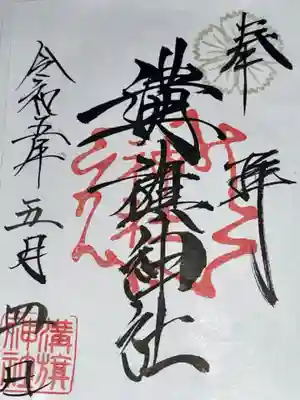 奉拝
溝旗神社
令和五年五月四日
溝旗
神社